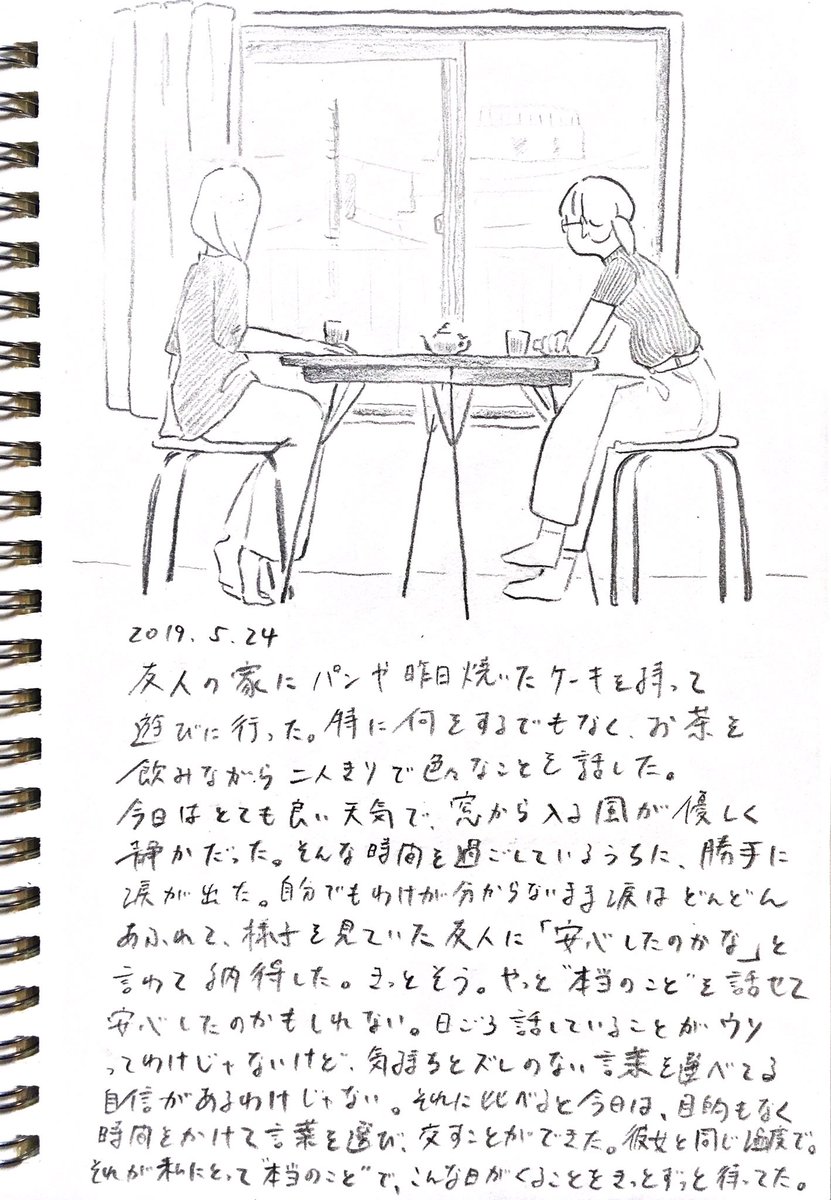 2019.5.24
友人の家にパンや昨日焼いたケーキを持って
遊びに行った。特に何をするでもなく、お茶を
飲みながら二人きりで色々なことを話した。
今日はとても良い天気で、窓から入る風が優しく
静かだった。そんな時間を過ごしているうちに、勝手に
涙が出た。自分でもわけが分からないまま涙はどんどん
あふれて、様子を見ていた友人に「安心したのかな」と
言われて納得した。きっとそう。やっと"本当のこと"を話せて
安心したのかもしれない。日ごろ話していることがウソ
ってわけじゃないけど、気持ちとズレのない言葉を選べてる
自信があるわけじゃない。それに比べると今日は、目的もなく
時間をかけて言葉を選び、交すことができた。彼女と同じ速度で。
それが私にとって"本当のこと"で、こんな日がくることをきっとずっと待ってた。